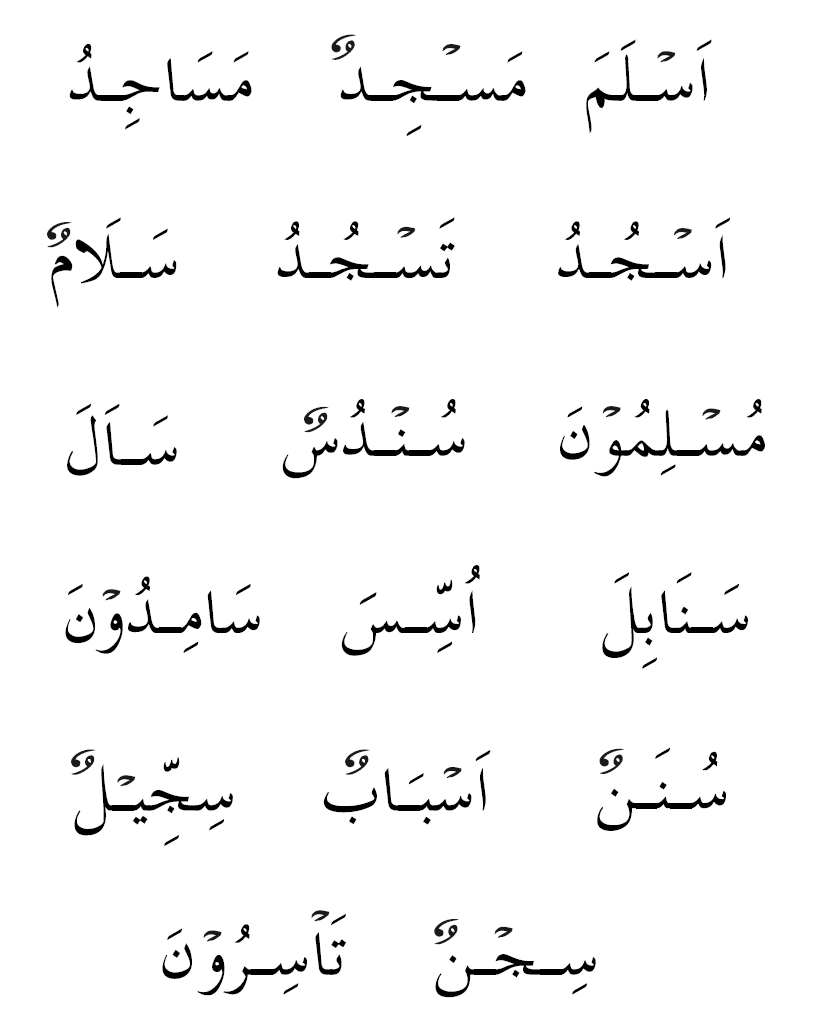 اَسْلَمَ مَسْجِدٌ مَسَاجِدُ
اَسْجُدُ تَسْجُدُ سَلَامٌ
مُسْلِمُوْنَ سُنْدُسٌ سَاَلَ
سَنَابِلَ اُسِّسَ سَامِدُوْنَ
سُنَنٌ اَسْبَابٌ سِجِّيْلٌ
سِجْنٌ تَاْسِرُوْنَ